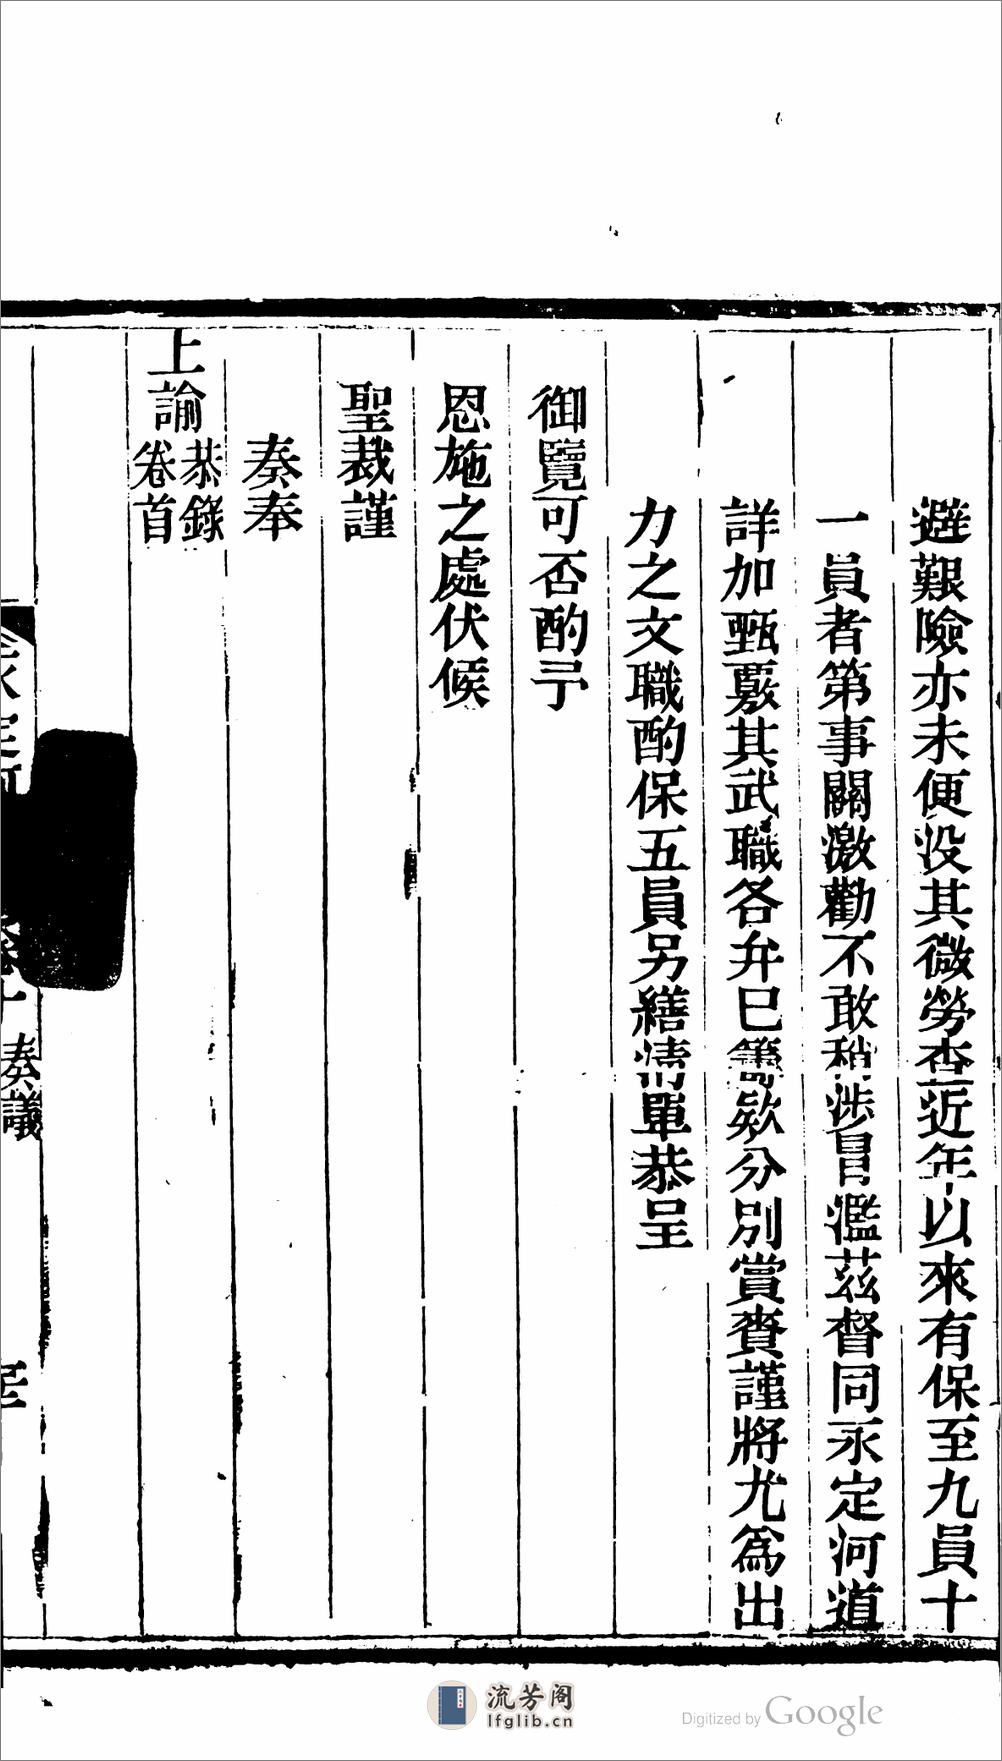 避艱險亦未便没其微勞查近年以來有保至九員十
一員者第事關激勸不敢稍涉冒濫茲督同永定河道
詳加甄覈其武職各弁已籌欵分別賞賚謹將尤爲出
力之文職酌保五員另繕清單恭呈
御覽可否酌予
恩施之處伏候
聖裁謹
奏奉
上諭恭錄
卷首
奏議
流芳阁
lfglib.cn
Digitized by Google